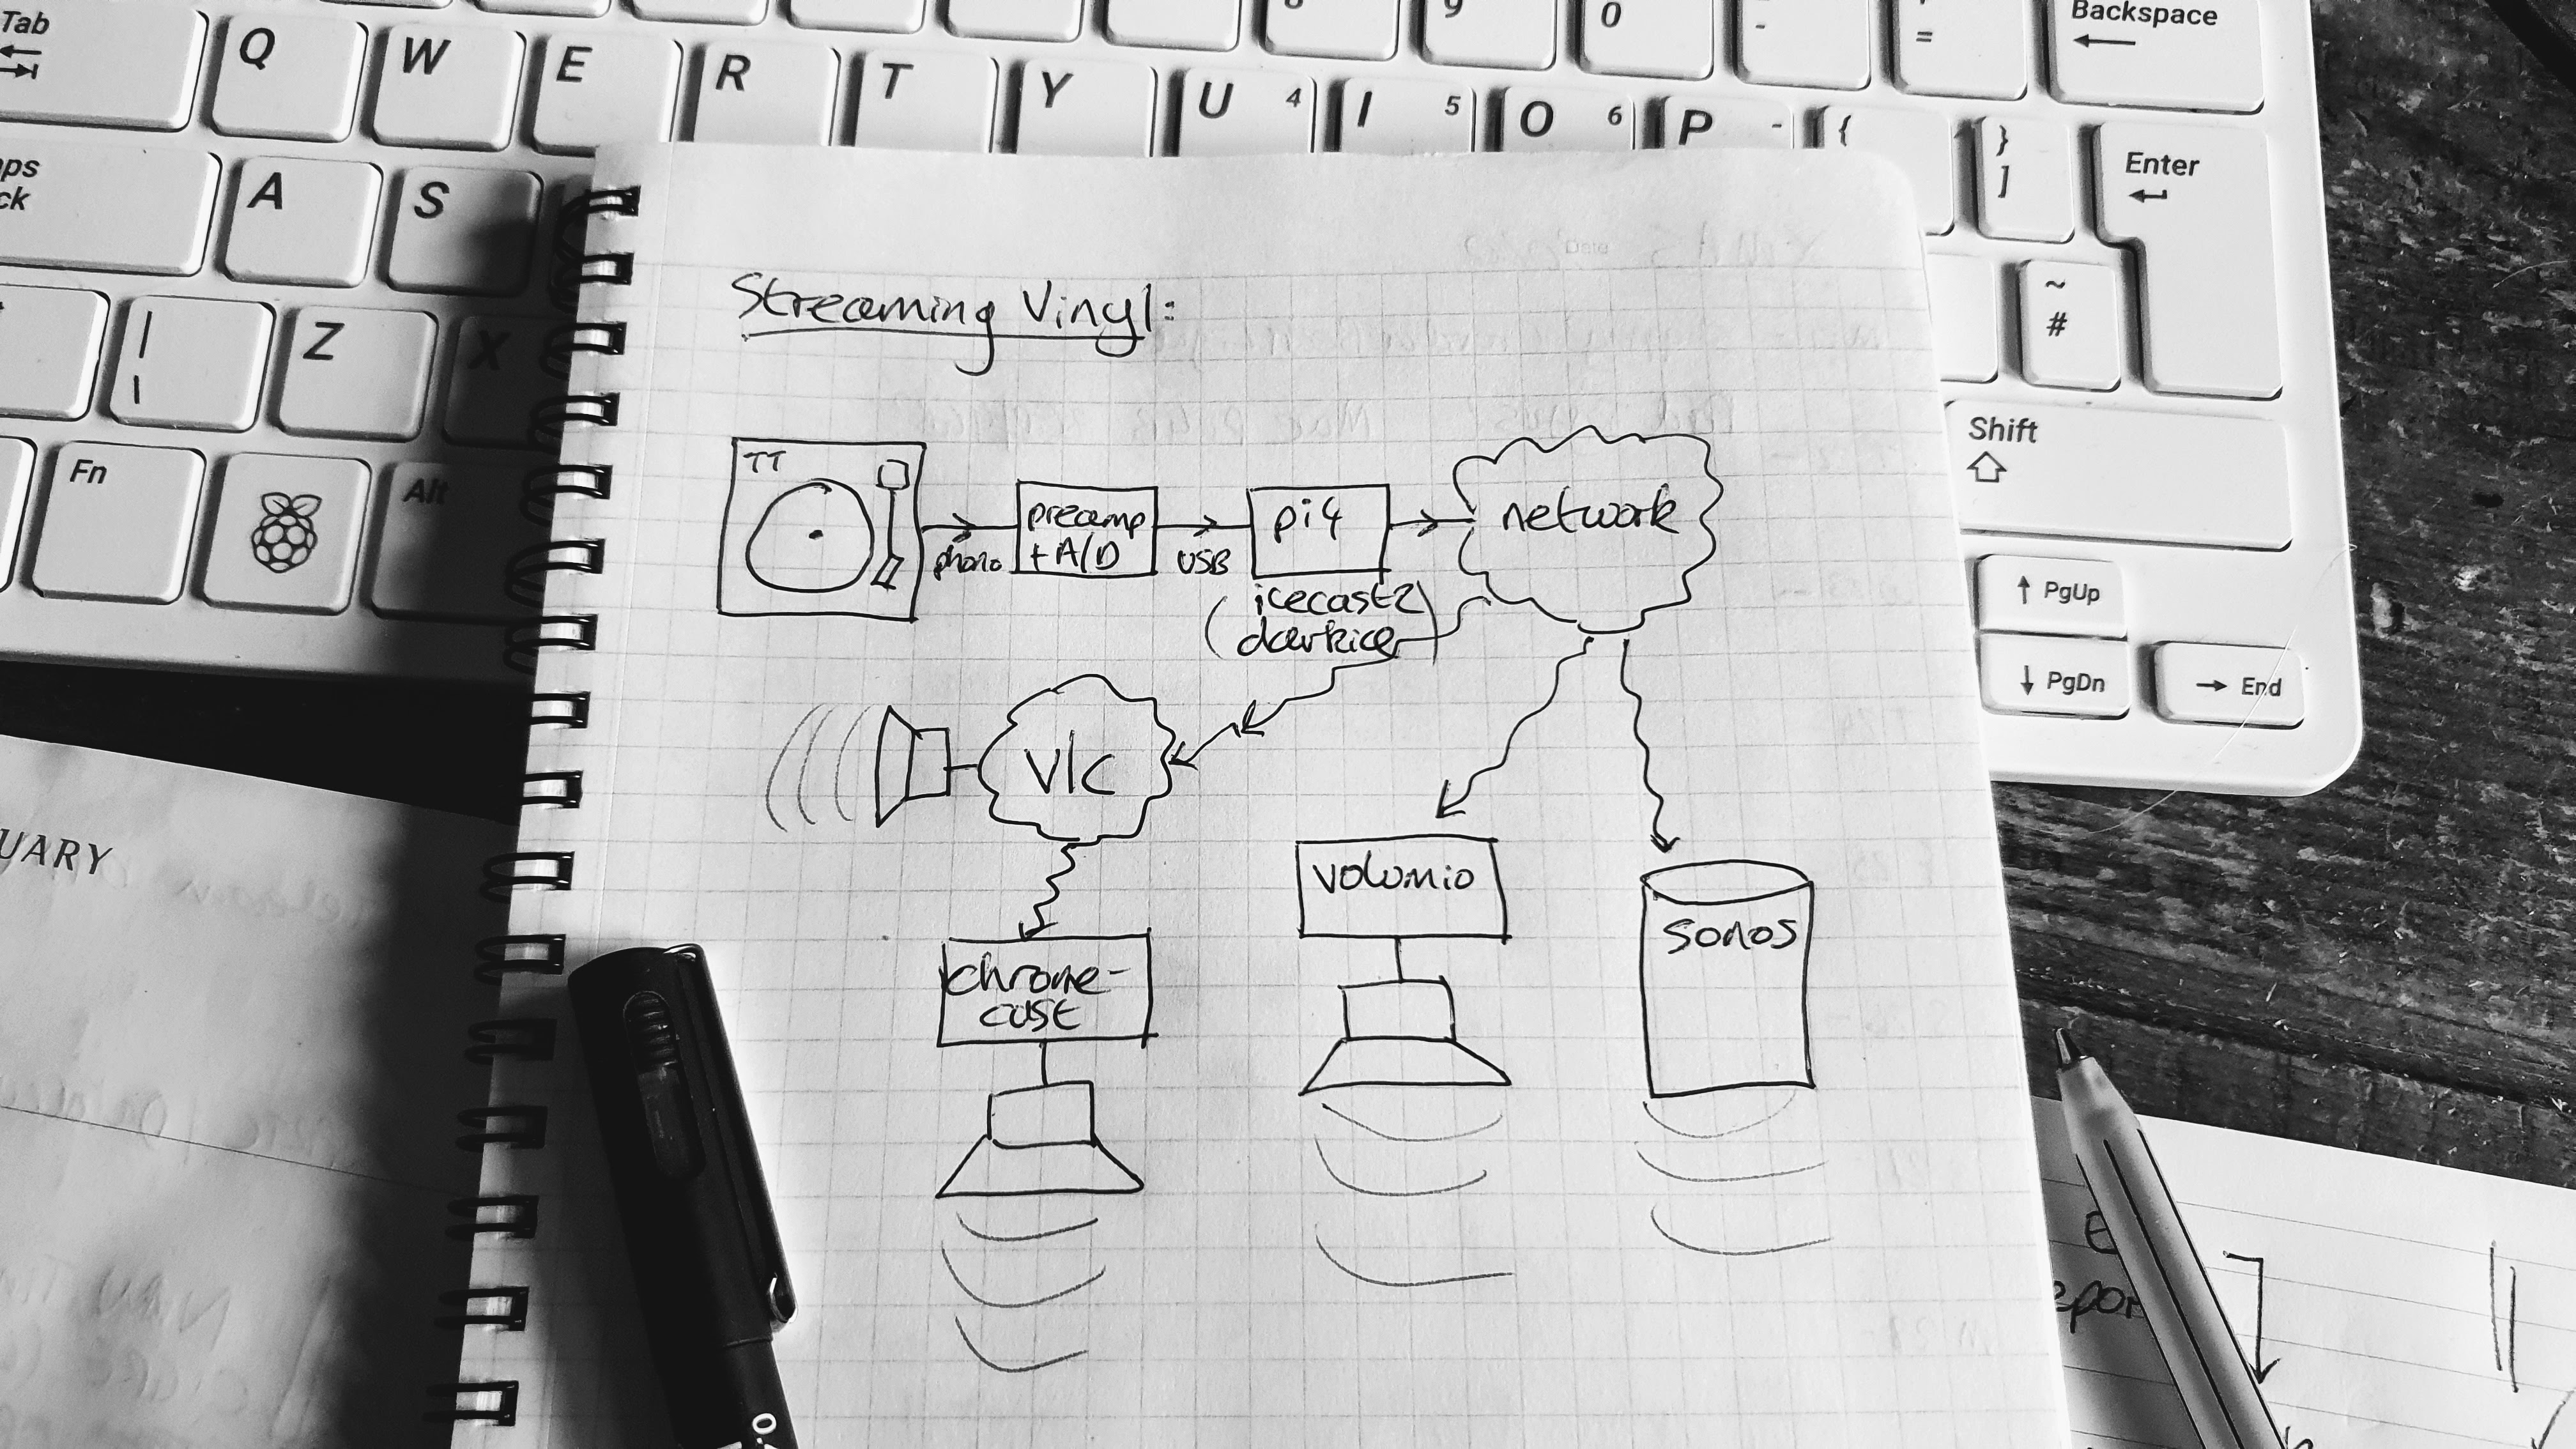 Backspace
9
0
-
=
Tab
Q
W
E
R
T
Y
U 4
I 5
O 6
P -
{
}
]
Enter
A
S
~
#
Z
X
|
\
Shift
Fn
Alt
↑ PgUp
↓ PgDn
→ End
Date
Streaming Vinyl:
TT
phono
preamp
+ A/D
USB
pi4
(icecast2
darkice)
network
vlc
chrome-
cast
volumio
sonos
UARY
0.